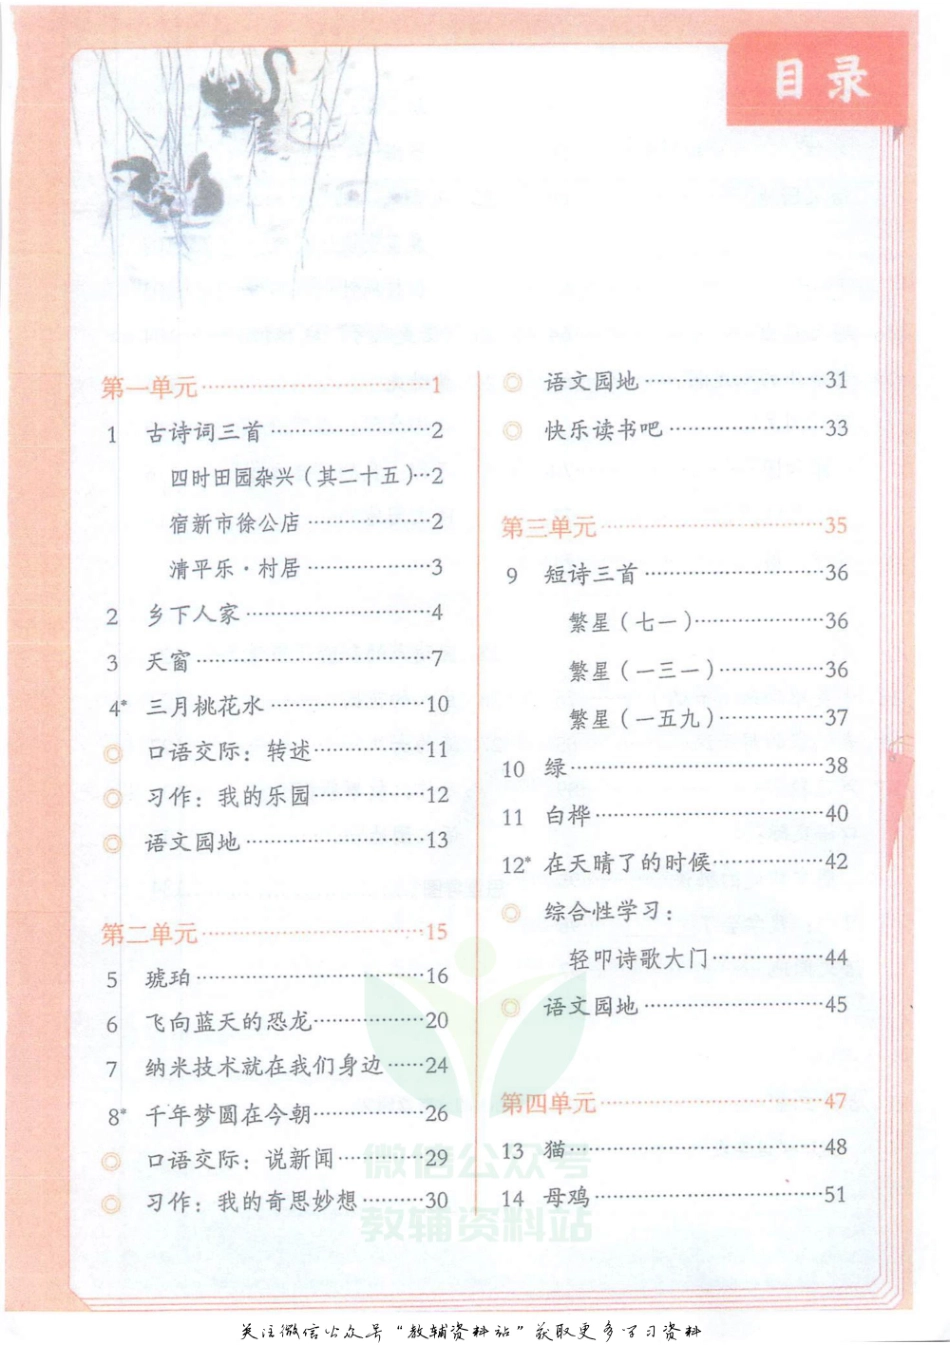 目录
第一单元……………………1
1 古诗词三首………………2
四时田园杂兴（其二十五）…2
宿新市徐公店……………2
清平乐·村居……………3
2 乡下人家…………………4
3 天窗………………………7
4* 三月桃花水………………10
◎ 口语交际：转述…………11
◎ 习作：我的乐园…………12
◎ 语文园地…………………13
第二单元……………………15
5 琥珀………………………16
6 飞向蓝天的恐龙…………20
7 纳米技术就在我们身边……24
8* 千年梦圆在今朝…………26
◎ 口语交际：说新闻………29
◎ 习作：我的奇思妙想………30
◎ 语文园地…………………31
◎ 快乐读书吧………………33
第三单元……………………35
9 短诗三首…………………36
繁星（七一）……………36
繁星（一三一）…………36
繁星（一五九）…………37
10 绿…………………………38
11 白桦………………………40
12* 在天晴了的时候…………42
◎ 综合性学习：
轻叩诗歌大门…………44
◎ 语文园地…………………45
第四单元……………………47
13 猫…………………………48
14 母鸡………………………51
微信公众号
教辅资料站
关注微信公众号“教辅资料站”获取更多学习资料